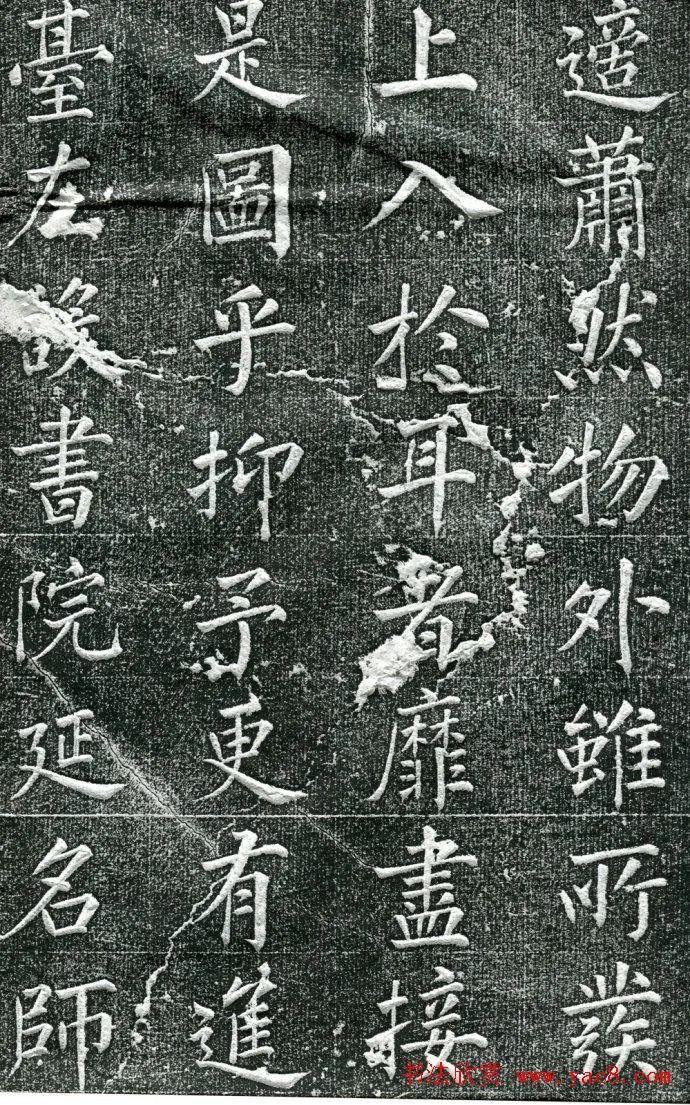 適蕭然物外雖所發
上入捡耳者靡盡接
是圖乎抑予更有進
臺左設書院延名師
书法欣赏 www.yac8.com